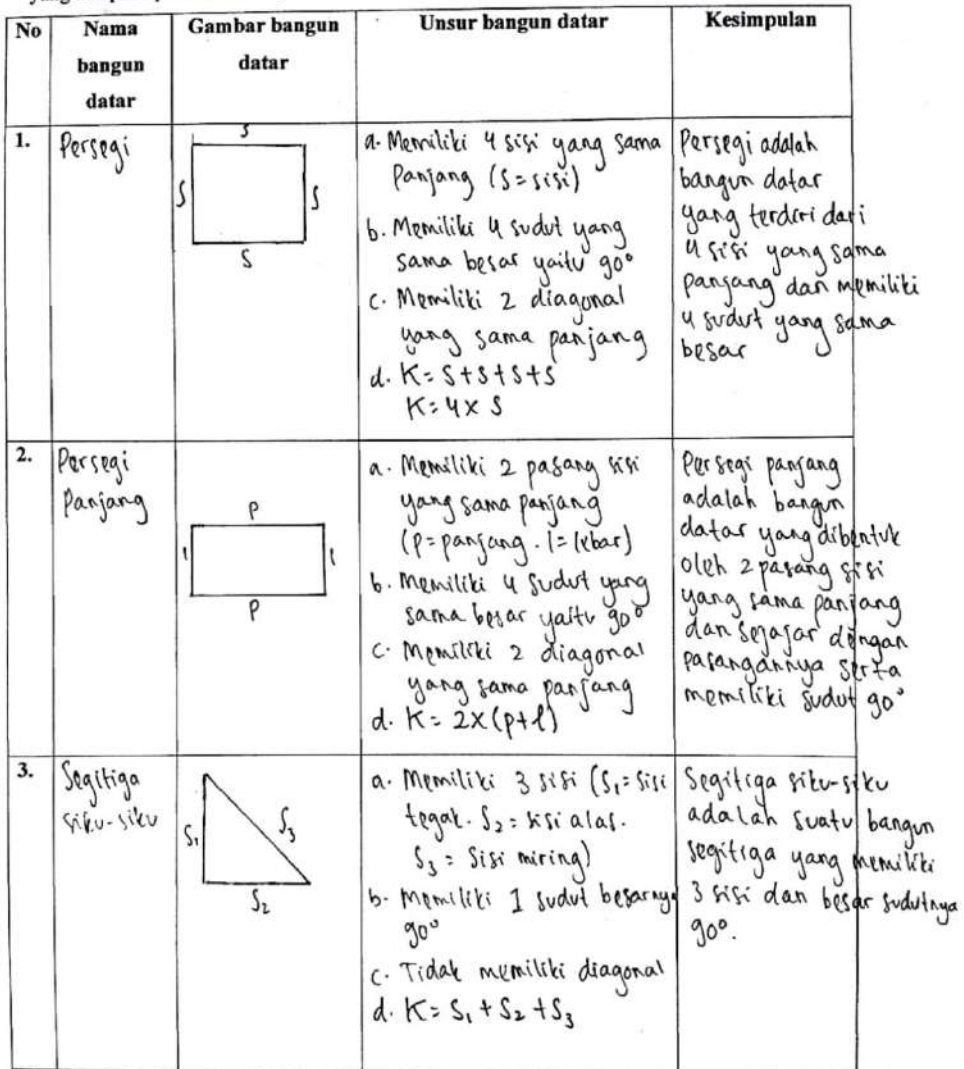 No
Nama
bangun
datar
Gambar bangun
datar
Unsur bangun datar
Kesimpulan
1.
Persegi
s
s
s
s
a. Memiliki 4 sisi yang sama
Panjang (s = sisi)
b. Memiliki 4 sudut yang
sama besar yaitu 90°
c. Memiliki 2 diagonal
yang sama panjang
d. K = S+S+S+S
K = 4 x S
Persegi adalah
bangun datar
yang terdiri dari
4 sisi yang sama
panjang dan memiliki
4 sudut yang sama
besar
2.
Persegi
Panjang
P
l
l
P
a. Memiliki 2 pasang sisi
yang sama panjang
(p = panjang. l = lebar)
b. Memiliki 4 sudut yang
sama besar yaitu 90°
c. Memiliki 2 diagonal
yang sama panjang
d. K = 2x(p+l)
Persegi panjang
adalah bangun
datar yang dibentuk
oleh 2 pasang sisi
yang sama panjang
dan sejajar dengan
pasangannya serta
memiliki sudut 90°
3.
Segitiga
siku-siku
S₁
S₃
S₂
a. Memiliki 3 sisi (S₁ = sisi
tegak. S₂ = sisi alas.
S₃ = Sisi miring)
b. Memiliki 1 sudut besarnya
90°
c. Tidak memiliki diagonal
d. K = S₁ + S₂ + S₃
Segitiga siku-siku
adalah suatu bangun
segitiga yang memiliki
3 sisi dan besar sudutnya
90°.